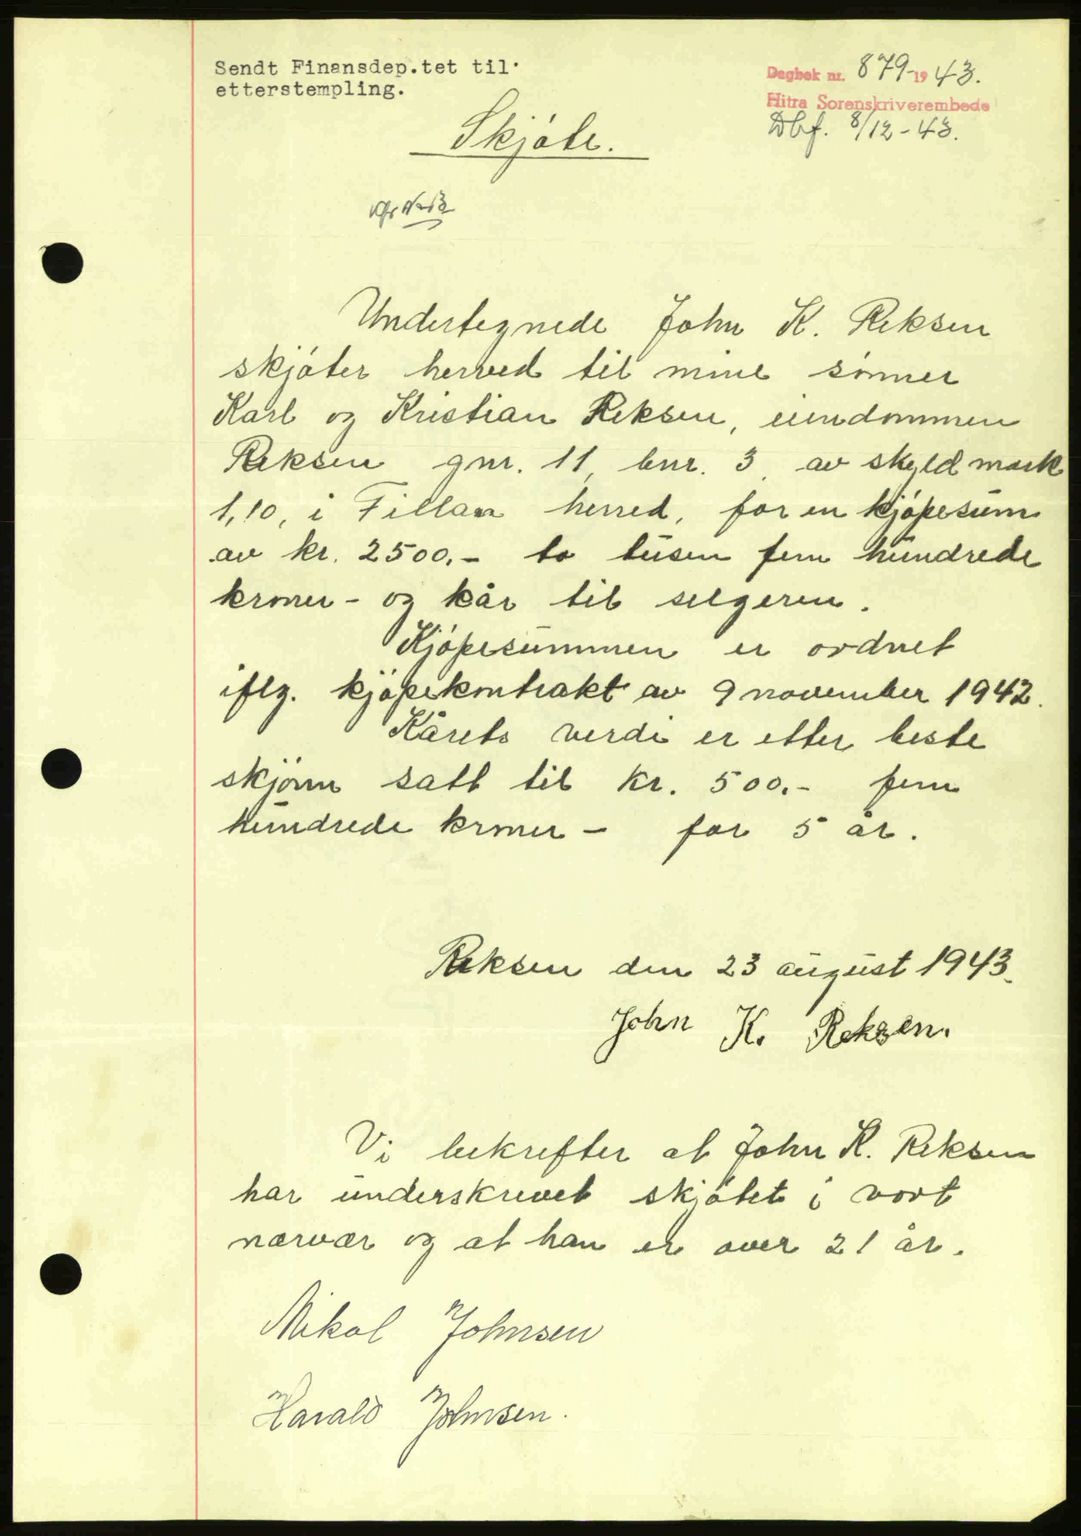 Sendt Finansdep.tet til
etterstempling.
Dagbok nr. 879-1943.
Hitra Sorenskriverembede
Dbf. 8/12-43.
Skjøte.
Undertegnede John K. Reksen
skjøter herved til mine sønner
Karl og Kristian Reksen, eiendommen
Reksen gnr. 11, bnr. 3, av skyld mark
1,10, i Fillan herred, for en kjøpesum
av kr. 2500.- to tusen fem hundrede
kroner - og kår til selgeren.
Kjøpesummen er ordnet
iflg. kjøpekontrakt av 9 november 1942.
Kårets verdi er etter beste
skjønn satt til kr. 500.- fem
hundrede kroner - for 5 år.
Reksen den 23 august 1943.
John K. Reksen.
Vi bekrefter at John K. Reksen
har underskrevet skjøtet i vort
nærvær og at han er over 21 år.
Nikol Johnsen
Harald Johnsen.